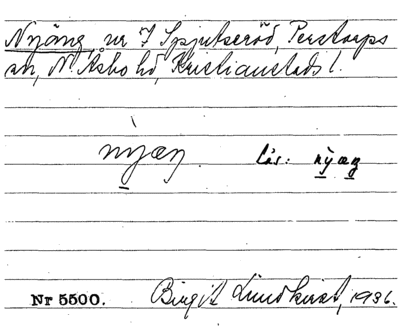 Nyäng, nr 7 Spjutseröd, Perstorps
sn, N. Åsbo hd, Kristianstads l.
nỳæŋ. läs: nỳæŋ
Nr 5500. Birgit Lundkvist, 1936.